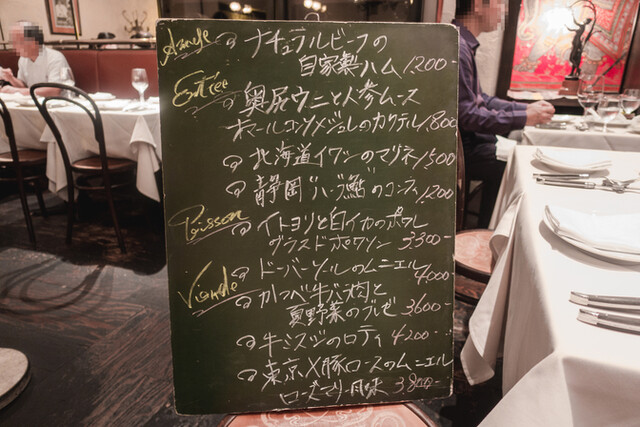 ナチュラルビーフの
自家製ハム 1,200-
Entrée 奥尻ウニと人参ムース
オマールコンソメジュレのカクテル 1,800
北海道イワシのマリネ 1,500
静岡"ハーブ鯖"のコンフィ 1,200
Poisson イトヨリと白イカのポワレ
グラスドポワソン 3300-
ドーバーソールのムニエル 4,000-
Viande かつべ牛バラ肉と
夏野菜のブレゼ 3600-
牛ミスジのロティ 4200-
東京X豚ロースのムニエル
ローズマリー風味 3,800-